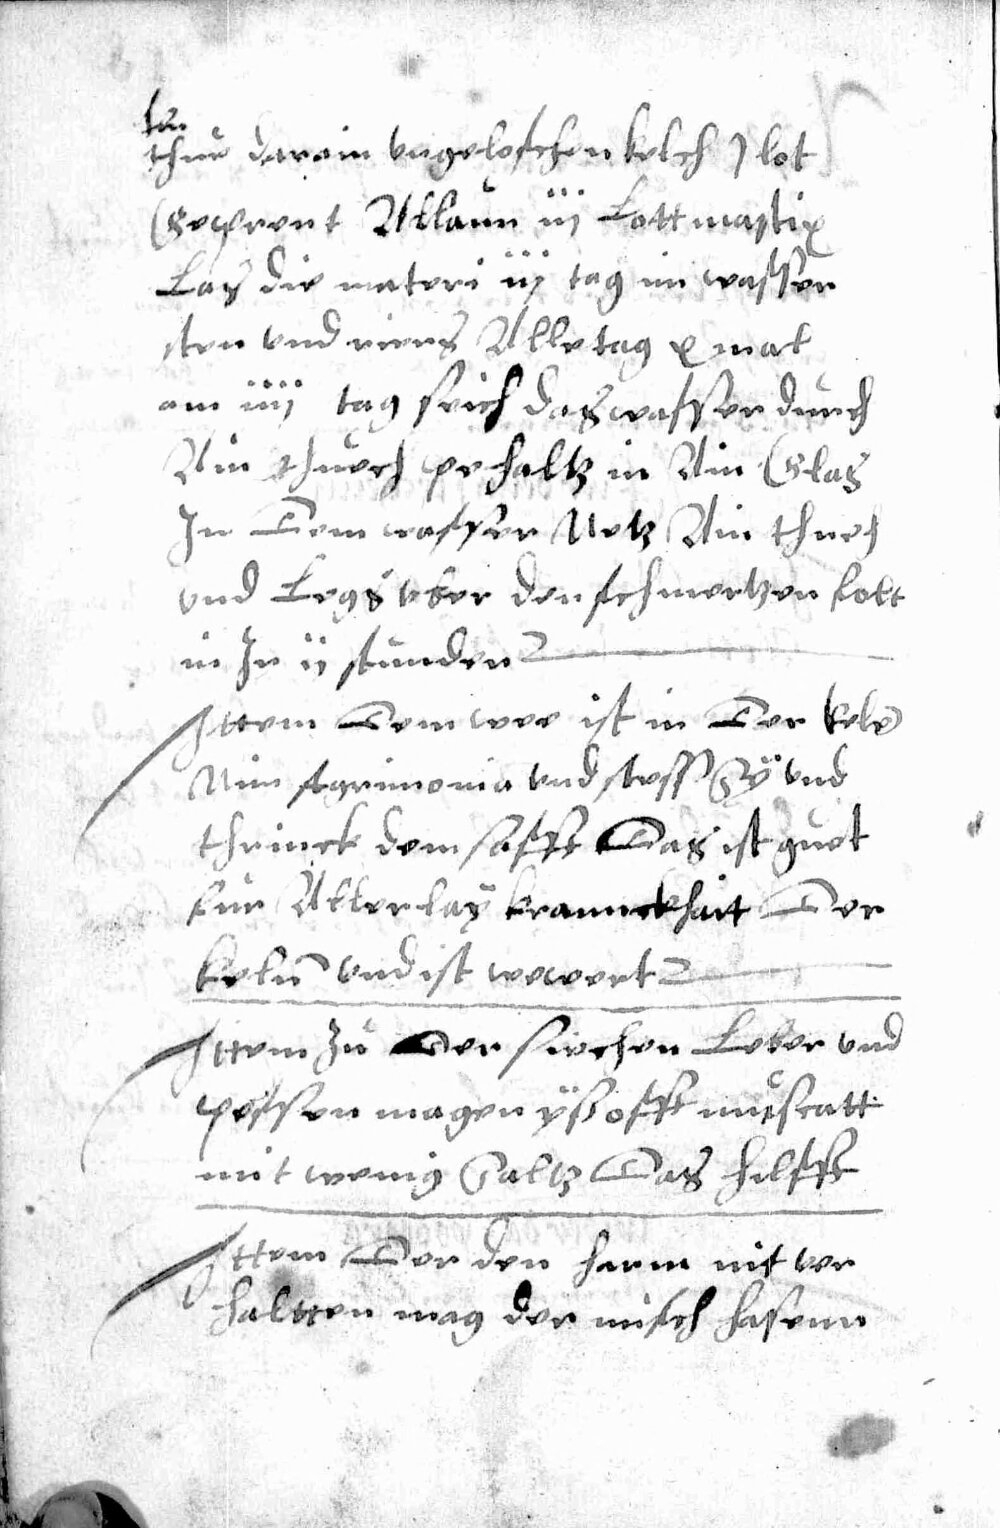 ten
thue darein ungeloschen kelch j lot
Geprent Allaun iij Lott mastix
Las die materi iij tag im wasser
sten und riers Alle tag x mal
am iiij tag seich das wasser durch
Ain thuech pehaltz in Ain Glas
In Dem wasser Netz Ain thuech
und Legs uber den schmertzen solt
in In ij stunden
Ittem Dem wee ist in Der kele
Nim Agrimonia und stoss Sÿ und
thrinck dem safft Das ist guet
fur Allerlaÿ kranckhait Der
kelnn und ist wewert
Ittem Zu Der siechen Leber und
pessen magen ÿs offt muescatt
mit wenig Saltz Das hilfft
Ittem Der den harm nit ver
haltten mag der misch hasenn